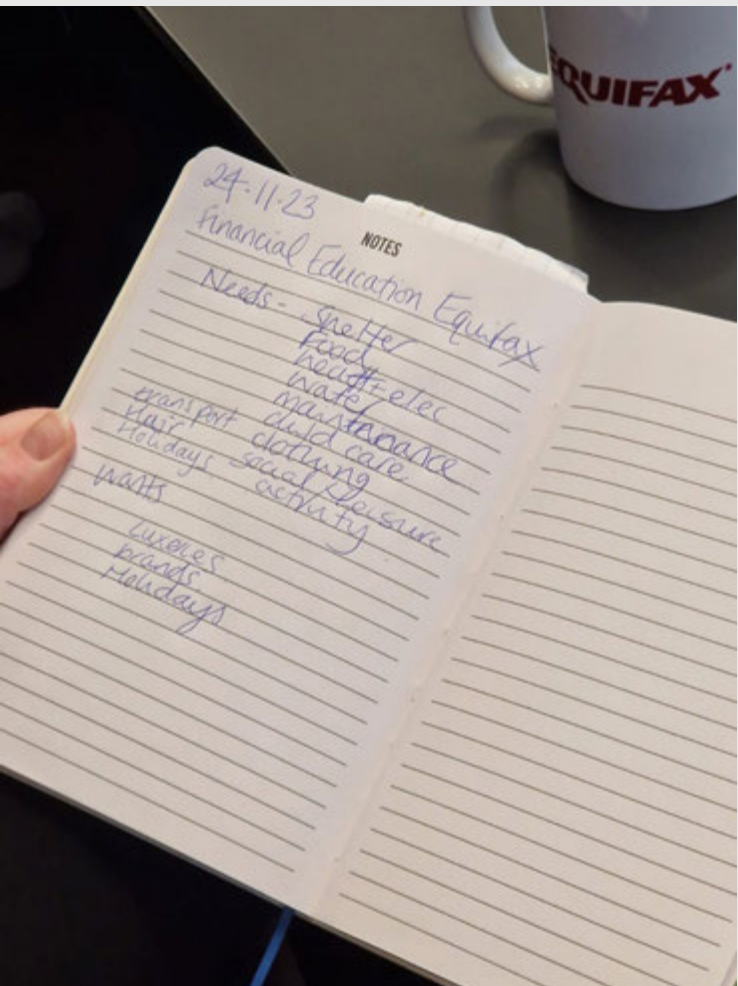 EQUIFAX
24.11.23
NOTES
Financial Education Equifax
Needs - Shelter
Food
heat + elec
water
maintanance
transport child care
Hair clothing
Holidays social / leisure
activity
Wants
Luxeries
brands
Holidays